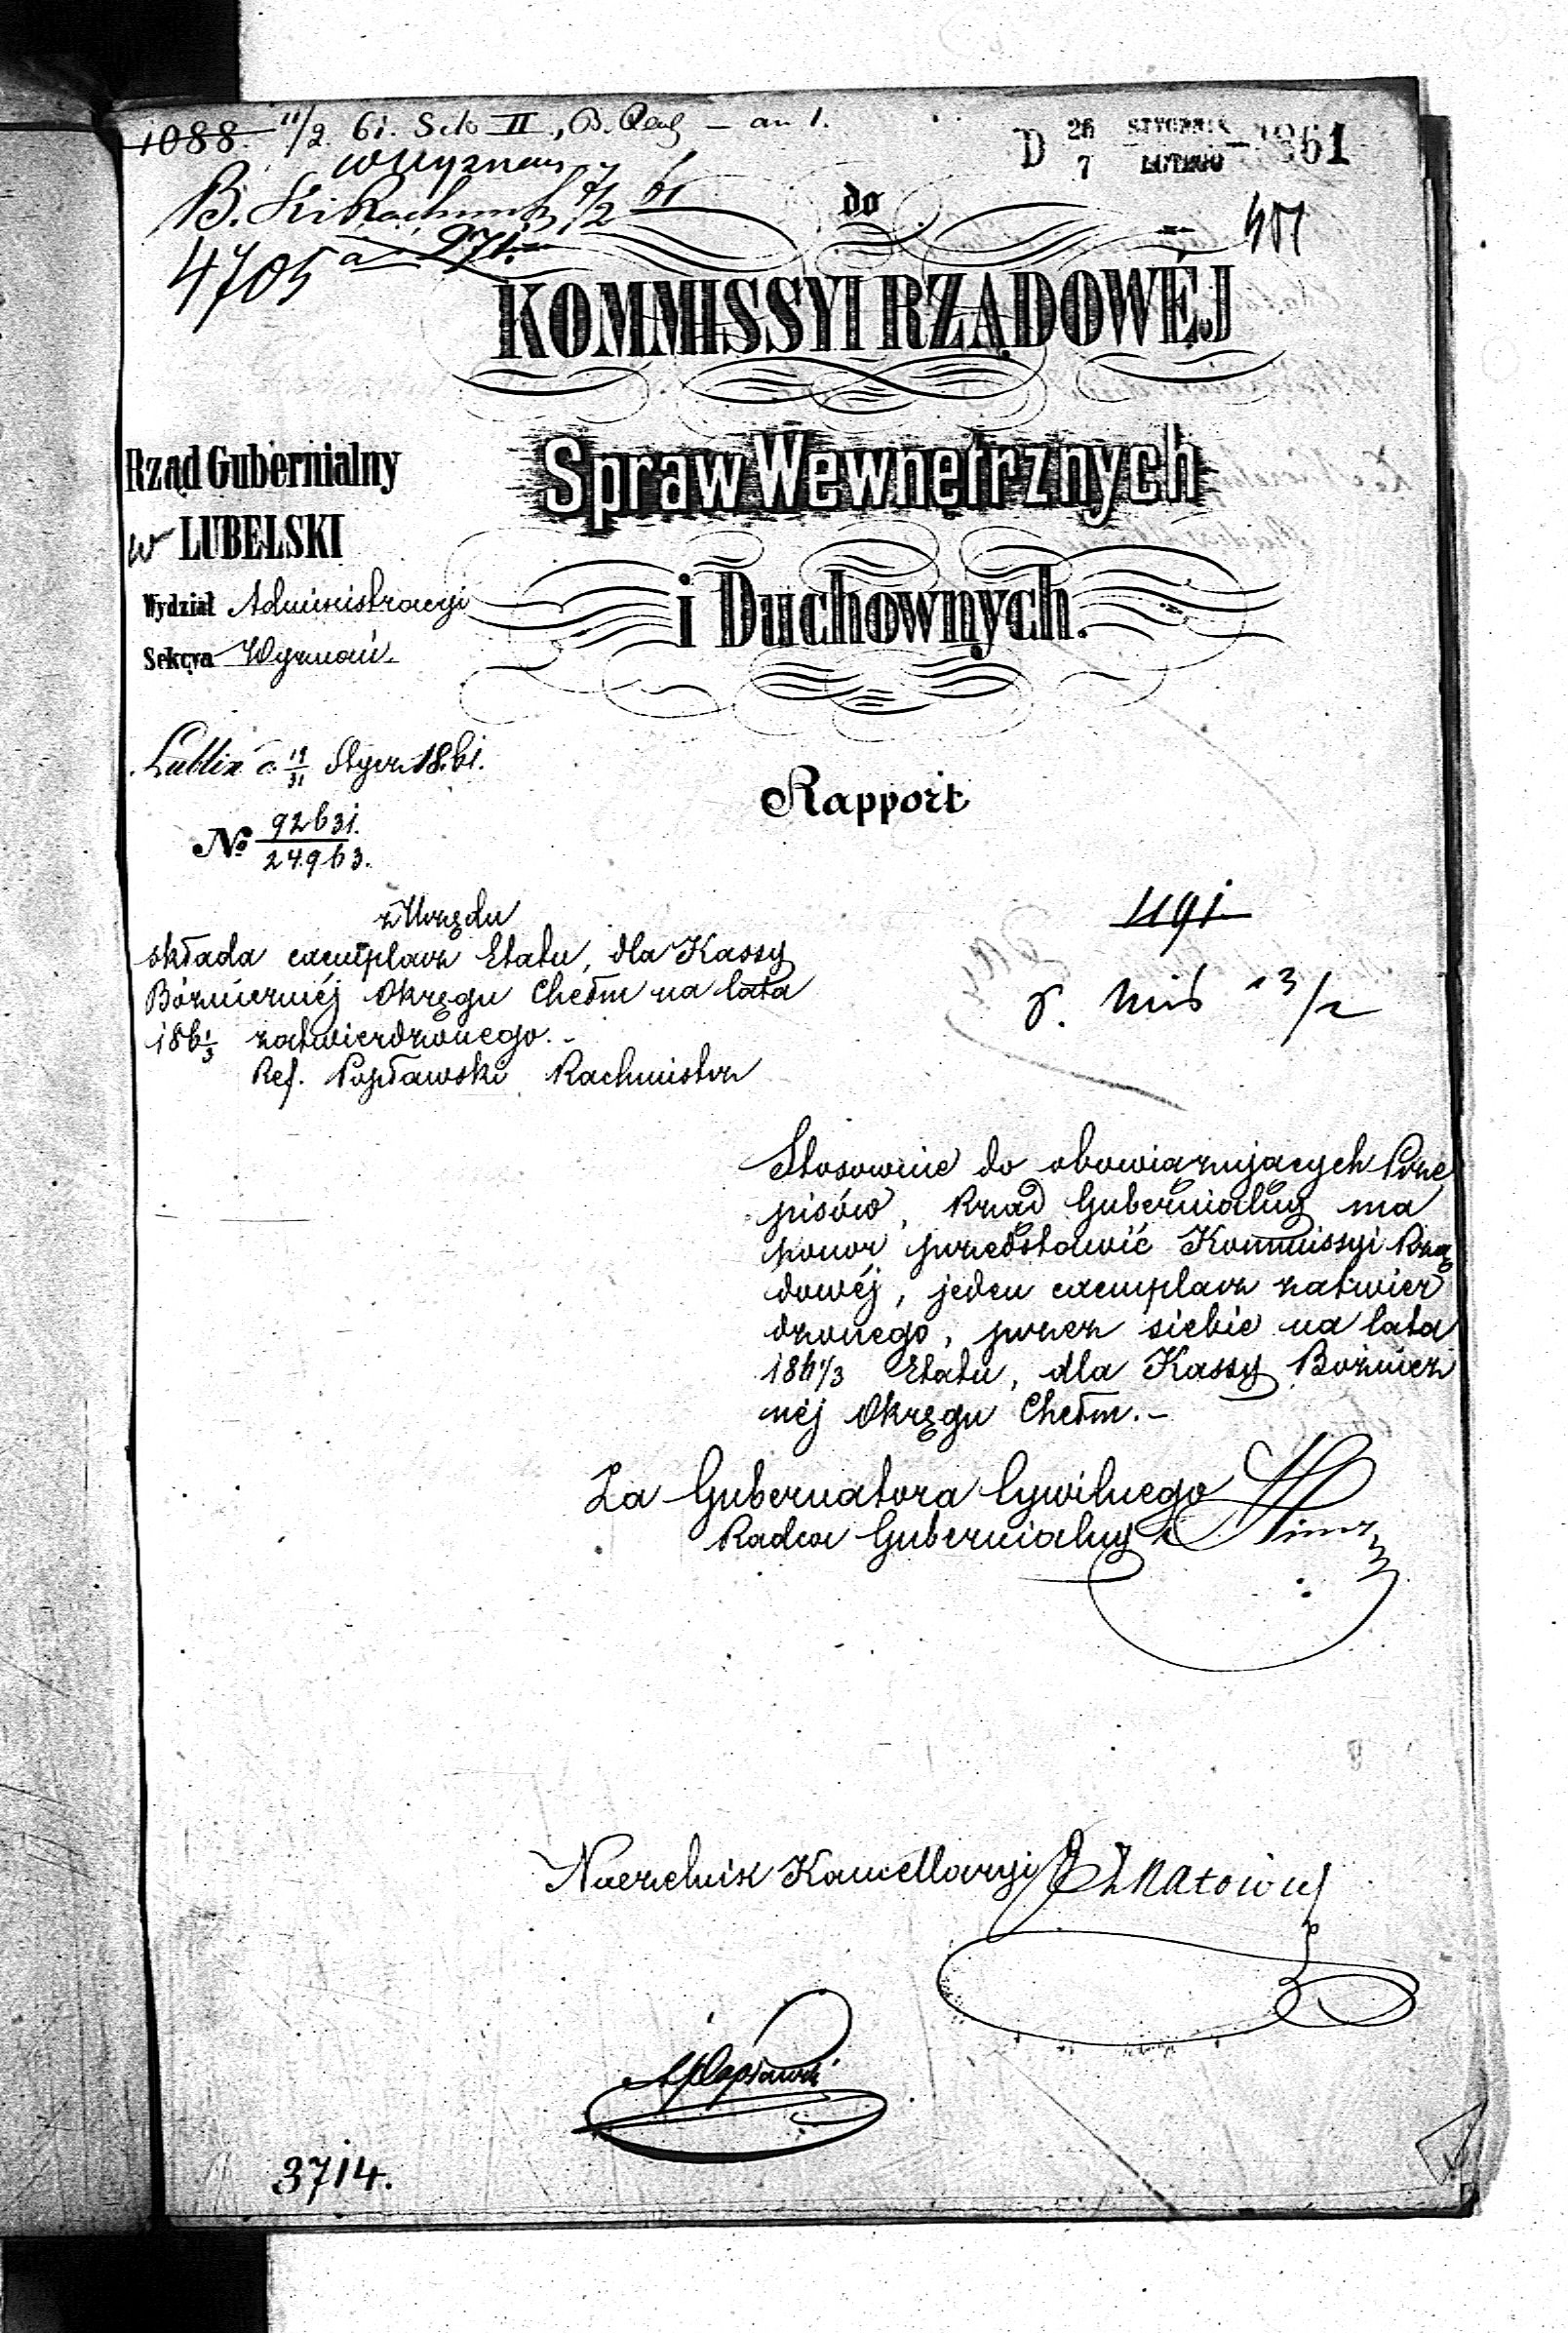 1088. 11/2 61. Sek II, B. Rach - an 1.
Wyznań
B. Ski Rachunk 9/2 61
4705 a 271.
D 26/7 STYCZNIA/LUTEGO 1861
do
KOMMISSYI RZĄDOWÉJ
Spraw Wewnętrznych
i Duchownych.
Rząd Gubernialny
w LUBELSKI
Wydział Administracyi
Sekcya Wyznań.
Lublin d. 19/31 Stycz 1861.
Rapport
No 92631./24963.
z Urzędu
składa exemplarz Etatu, dla Kassy
Bóżnicznéj Okręgu Chełm na lata
1861/3 zatwierdzonego.-
Ref. Popławski Rachmistrz
1191
13/2
Stosownie do obowiązujących Prze
pisów, Rząd Gubernialny ma
honor przedstawić Kommissyi Rzą
dowéj, jeden exemplarz zatwier
dzonego, przez siebie na lata
1861/3 Etatu, dla Kassy Bożnicz
néj Okręgu Chełm.-
Za Gubernatora Cywilnego
Radca Gubernialny
Naczelnik Kancellaryi
APopławski
3714.